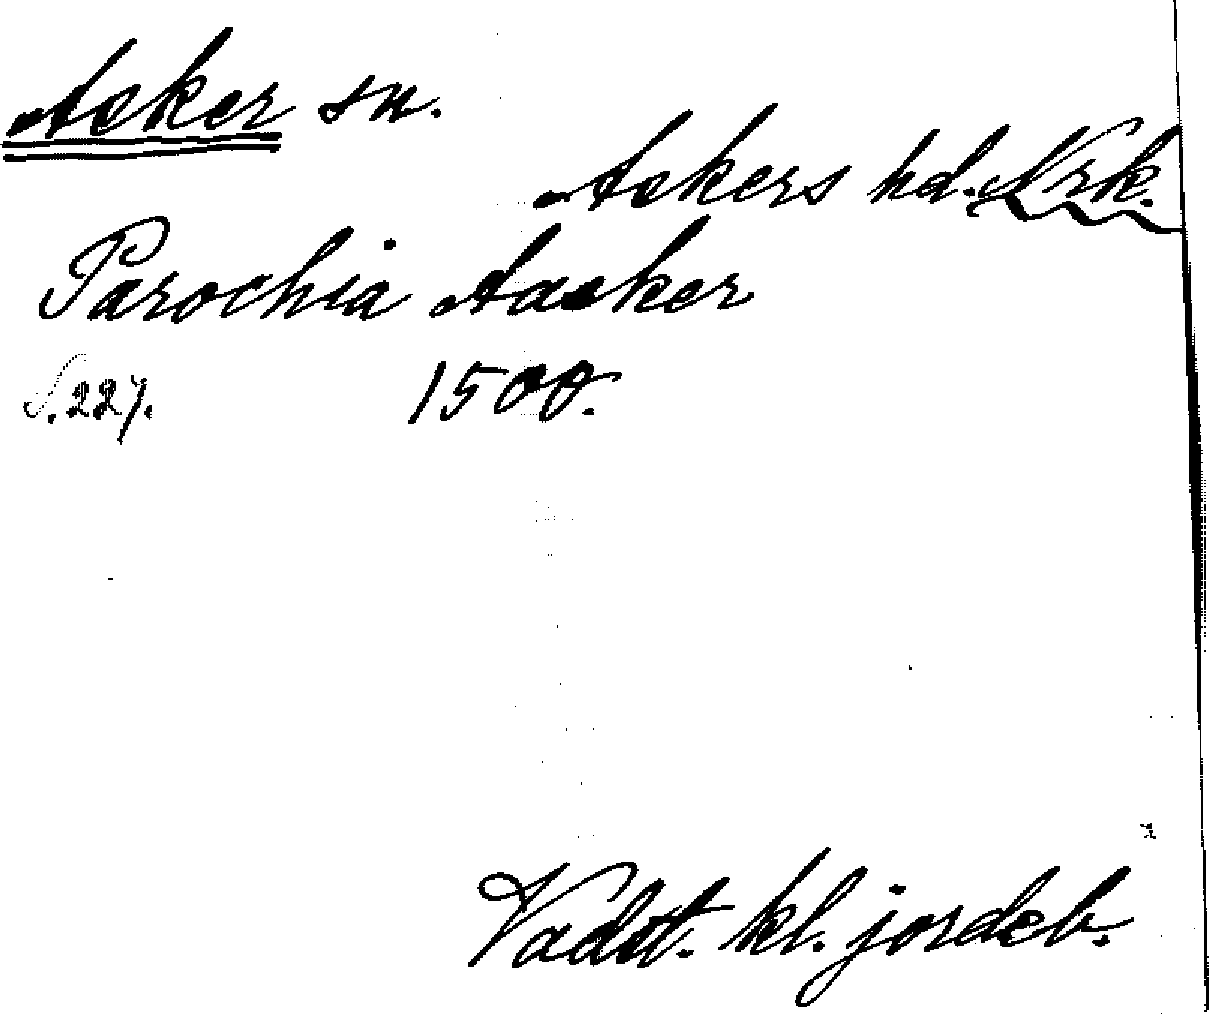 Asker sn.
Askers hd. Nrk.
Parochia Aasker
S. 227. 1500.
Vadst. kl. jordeb.